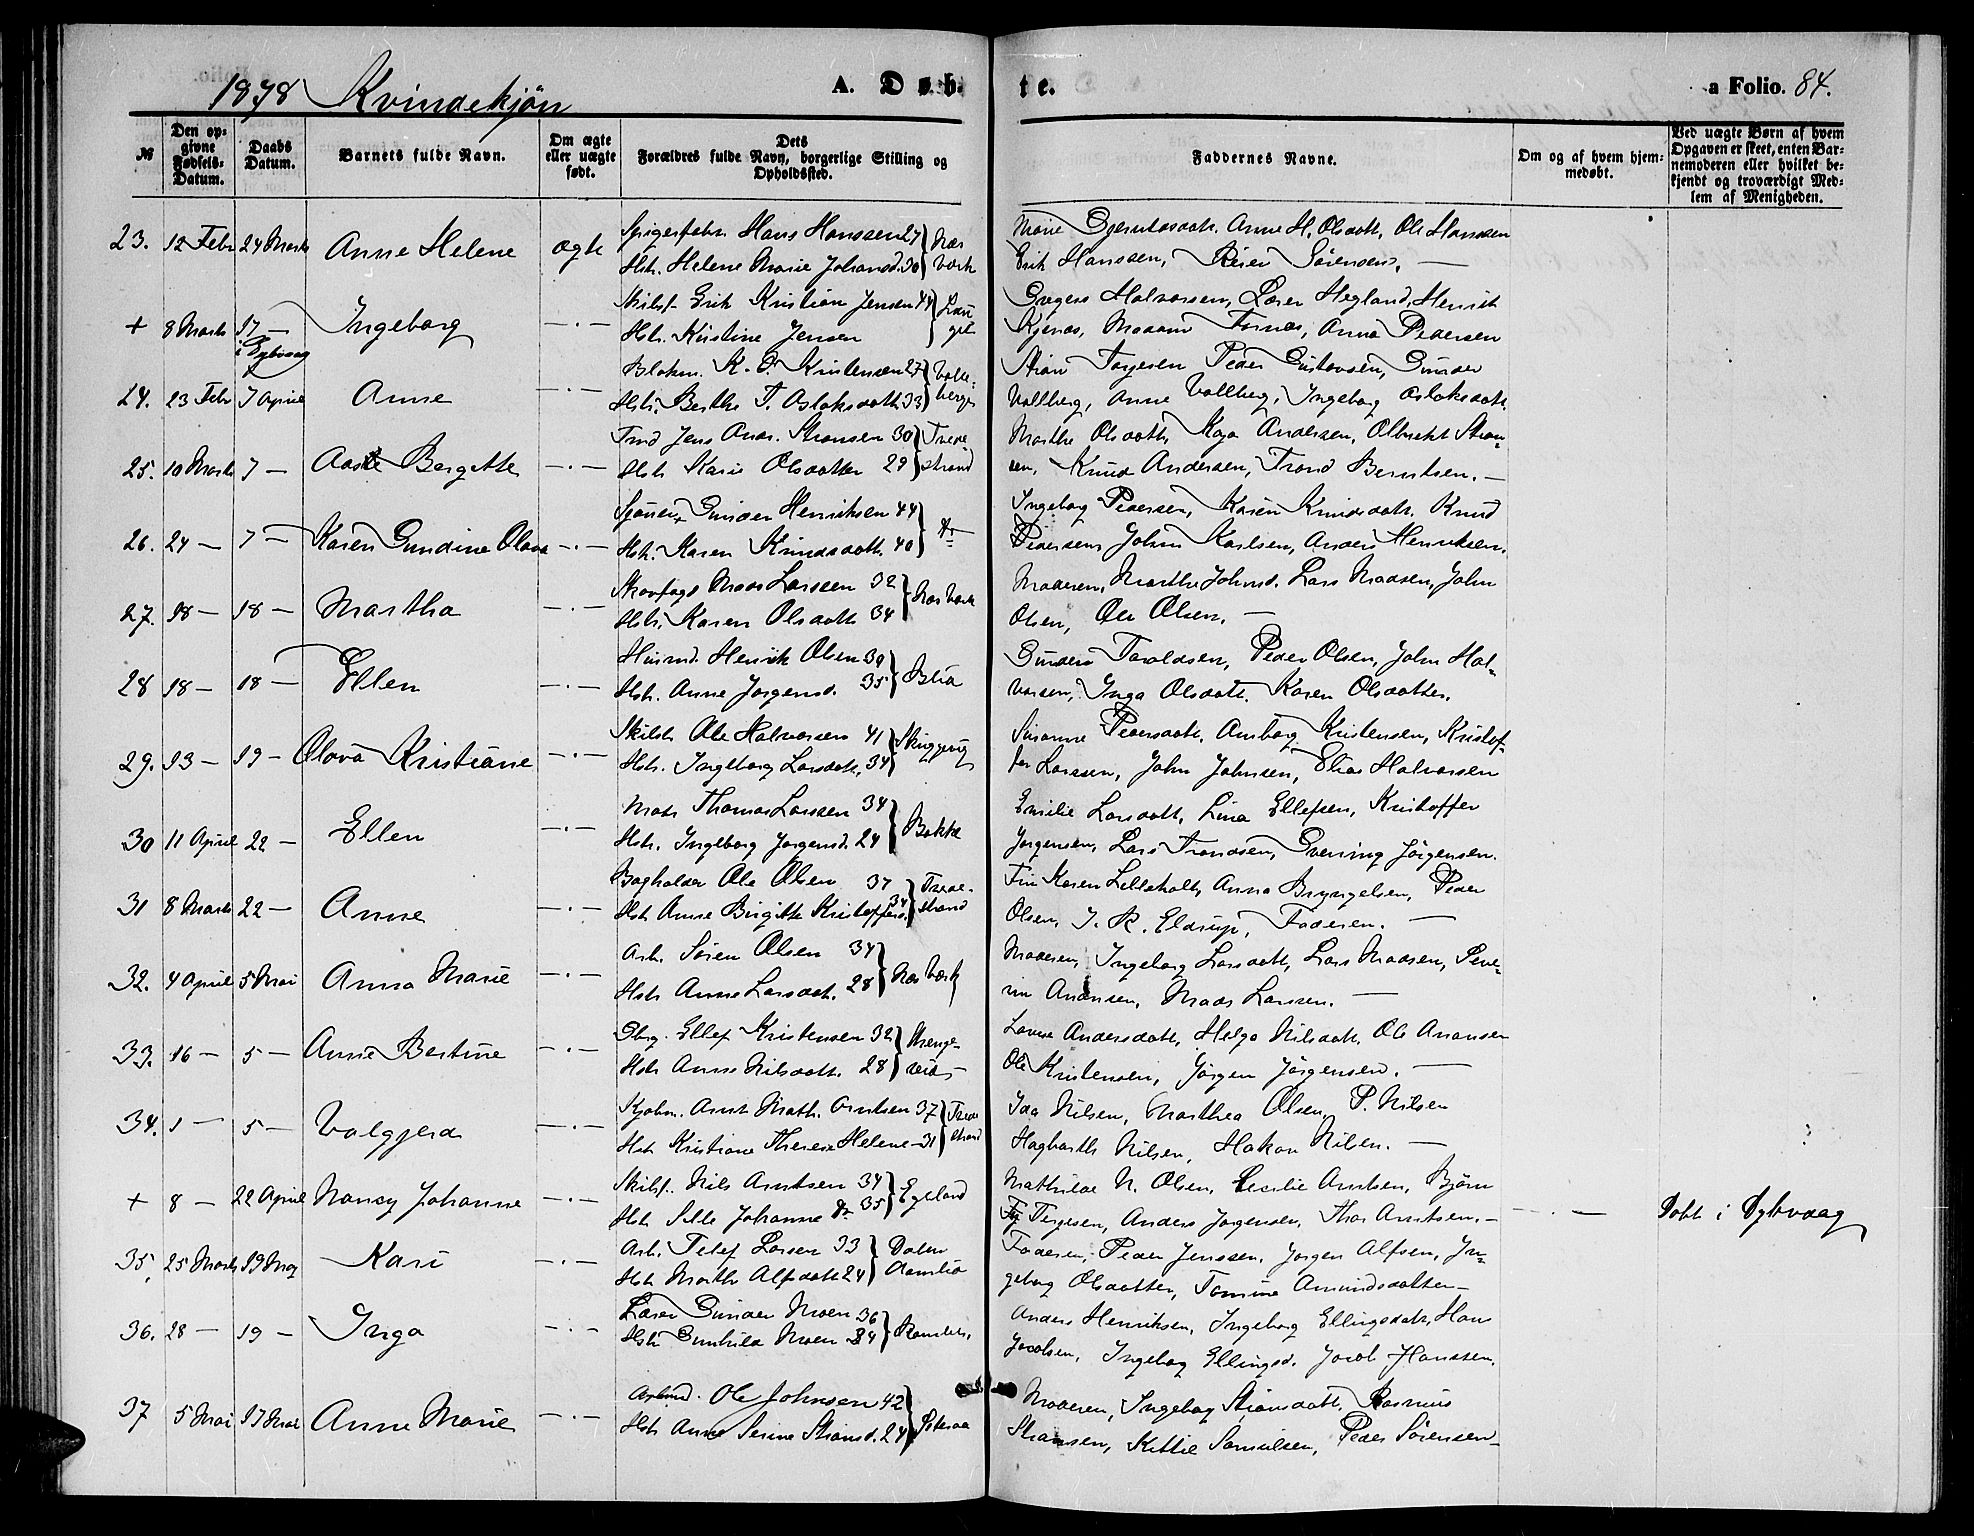 1878 Kvindekjøn
A. Døb-
te.
a Folio. 84.
№
Den op-
givne
Fødsels-
Datum.
Daabs
Datum.
Barnets fulde Navn.
Om ægte
eller uægte
født.
Dets
Forældres fulde Navn, borgerlige Stilling og
Opholdssted.
Faddernes Navne.
Om og af hvem hjem-
medøbt.
Ved uægte Børn af hvem
Opgaven er skeet, enten Bar-
nemoderen eller hvilket be-
kjendt og troværdigt Med-
lem af Menigheden.
23. 12 Febr 24 Marts Anne Helene ægte
Hans Hanssen 27 Næs
Hstr. Helene Marie Johansd. 30 Værk
Anne H. Olsdatt. Ole Hanssen
Erik Hanssen, Sørensen. —
+ 8 Marts 17 — Ingeborg — . —
i Dybvaag
Skibsf. Erik Kristian Jensen 44
Hstr. Kristine Jensen
Halvorsen, Lærer Hegland, Henrik
Madam Anna Pedersen
24. 23 Febr 7 April Anne — . —
K. O. Kristensen 27
Hstr. Berthe T. Aslaksdatt. 33
Torjesen Peder Gustavsen, Gunder
Vollberg, Anne Vollberg, Ingeborg Aslaksdatt.
25. 10 Marts 7 — Aaste Bergitte — . —
Jens Andr. Stransen 30 Tvede
Hstr. Karen Olsdatter 29 strand
Marthe Olsdatt, Kaja Andersen, Olbrecht Stran-
sen, Knud Andersen, Trond Berntsen. —
26. 24 — 7 — Karen Gundine Olava — . —
Gunder Henriksen 44
Hstr. Karen Knudsdatt. 40
Ingeborg Pedersen, Karen Knudsdatt. Knud
Pedersen, John Karlsen, Anders Henriksen.
27. 18 — 18 — Martha — . —
Skovfogd Mads Larssen 32 Næs Værk
Hstr. Karen Olsdatt 34
Moderen, Marthe Johnsd. Lars Madsen, John
Olsen, Ole Olsen. —
28 18 — 18 — Ellen — . —
Husmd. Henrik Olsen 39
Hstr. Anne Jørgensd. 35
Gunder Taraldsen, Peder Olsen, John Hal-
vorsen, Inga Olsdatt. Karen Olsdatter.
29. 13 — 19 — Olava Kristiane — . —
Ole Halvorsen 41
Hstr. Ingeborg Larsdatt. 34
Susanne Pedersdatt. Kristensen, Kristof-
fer Larssen, John Johnsen, Elias Halvorsen
30 11 April 22 — Ellen — . —
Matr. Thomas Larssen 34 Bakke
Hstr. Ingeborg Jørgensd. 24
Emilie Larsdatt, Lina Ellefsen, Kristoffer
Jørgensen, Lars Trondsen, Jørgensen.
31 8 Marts 22 — Anne — . —
Bogholder Ole Olsen 37 Tvede-
Hstr. Anne Birgitte Kristoffers. 34 strand
Karen Lilleholt, Anna Bryngelsen, Peder
Olsen, J. R. Eldrup, Faderen. —
32. 4 April 5 Mai Anna Marie — . —
Arb. Søren Olsen 34
Hstr. Anne Larsdat. 28 Næs Værk
Moderen, Ingeborg Larsdatt, Lars Madsen,
Mads Larssen. —
33. 16 — 5 — Anne Bertine — . —
Ellef Kristensen 32
Hstr. Anne Nilsdatt. 28
Andersdatt, Helga Nilsdatt, Ole
Ole Kristensen, Jørgen Jørgensen. —
34. 1 — 5 — Valgjerd — . —
Kjøbm. Arnt Math. Arntsen 37 Tvede
Hstr. Kristiane Therese Helene — 31 strand
Ida Nilsen, Marthea Olsen, P. Nilsen
Hagbarth Nilsen, Hakon Nilsen. —
+ 8 — 22 April Nancy Johanne — . —
Skibsf. Nils Arntsen 34 Egeland
Hstr. Johanne do 35
Mathilde N. Olsen, Cecilie Arntsen, Bjørn
Terjesen, Anders Jørgensen, Thor Arntsen. —
— . — Døbt i Dybvaag
35. 25 Marts 19 Mai Kari — . —
Arb. Tellef Larsen 33
Hstr. Marthe Alfsdatt 24
Faderen, Peder Jenssen, Jørgen Alfsen, In-
geborg Olsdatter, Tomine Amundsdatter —
36. 28 — 19 — Inga — . —
Lærer Gunder Moen 36
Hstr. Gunhild Moen 34
Anders Henriksen, Ingeborg Ellingsdatt, Hans
Jacobsen, Ingeborg Ellingsd. Jacob Hanssen.
37 5 Mai 17 Mai Anne Marie — . —
Ole Johnsen 42
Hstr. Anne Serine Stiansd. 24
Moderen, Ingeborg Stiansdatt. Rasmus
Samuelsen, Peder Sørensen —